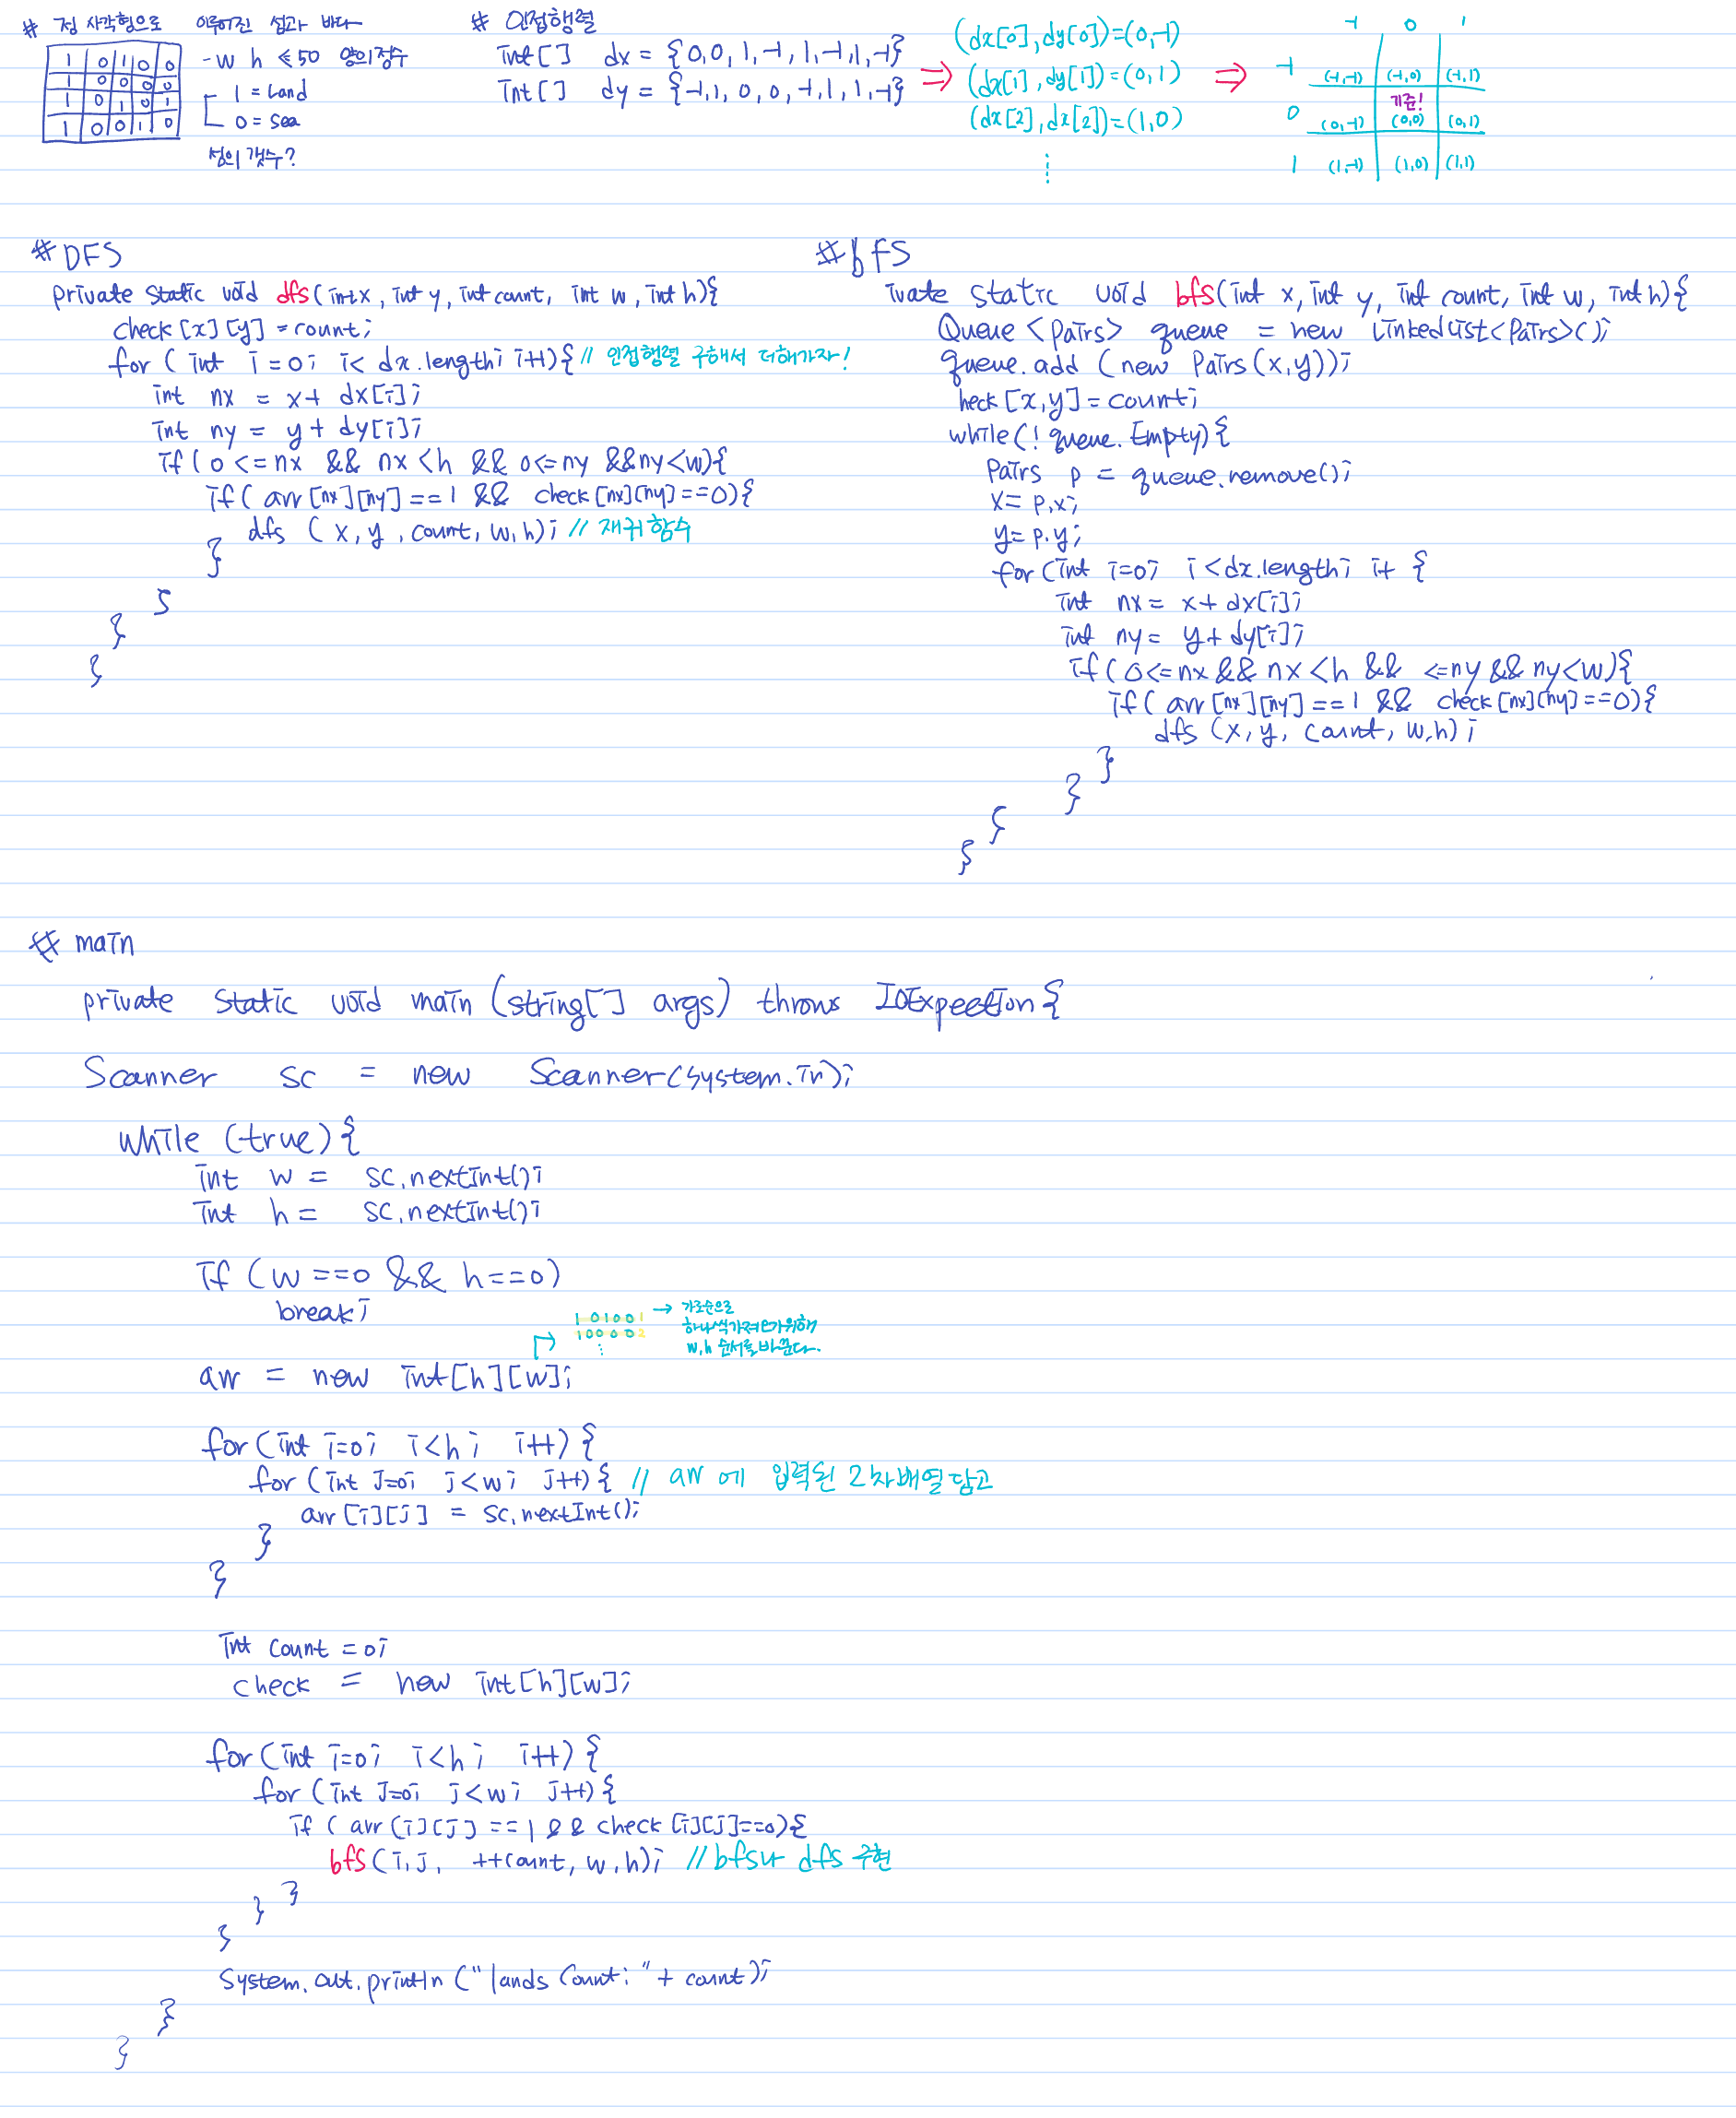 # 정 사각형으로 이루어진 섬과 바다
1 0 1 0 0
1 0 0 0 0
1 0 1 0 1
1 0 0 1 0
- w h ≤ 50 양의정수
1 = Land
0 = Sea
섬의 갯수?
# 인접행렬
int[] dx = {0,0,1,-1,1,-1,1,-1}
int[] dy = {-1,1,0,0,-1,1,1,-1}
⇒
(dx[0],dy[0])=(0,-1)
(dx[1],dy[1])=(0,1)
(dx[2],dx[2])=(1,0)
⇒
-1 0 1
-1 (-1,-1) (-1,0) (-1,1)
기준!
0 (0,-1) (0,0) (0,1)
1 (1,-1) (1,0) (1,1)
# DFS
private static void dfs(int x, int y, int count, int w, int h){
check[x][y] = count;
for ( int i = 0; i < dx.length; i++){ // 인접행렬 구해서 더해가자!
int nx = x + dx[i];
int ny = y + dy[i];
if( 0 <= nx && nx < h && 0<= ny && ny<w){
if( arr[nx][ny] == 1 && check[nx][ny]==0){
dfs ( x, y, count, w, h); // 재귀함수
}
}
}
}
# bfs
ivate static void bfs(int x, int y, int count, int w, int h){
Queue <Pairs> queue = new LinkedList<Pairs>();
queue.add (new Pairs(x,y));
heck[x,y] = count;
while(! queue. Empty){
Pairs p = queue.remove();
x= p.x;
y= p.y;
for (int i=0; i <dx.length; i+ {
int nx = x + dx[i];
int ny = y + dy[i];
if( 0<=nx && nx <h && <=ny && ny<w){
if( arr[nx][ny] == 1 && check[nx][ny]==0){
dfs (x, y, count, w,h);
}
}
}
}
# main
private static void main (string[] args) throws IOExpection{
Scanner sc = new Scanner(system.in);
while (true){
int w = sc.nextInt();
int h = sc.nextInt();
if (w ==0 && h==0)
break;
1 0 1 0 0 1 → 가로순으로
1 0 0 0 0 2 하나씩 가져오기위해
w,h 순서를 바꾼다.
arr = new int[h][w];
for (int i=0; i<h; i++){
for (int j=0; j<w; j++){ // arr 에 입력된 2차배열 담고
arr[i][j] = sc.nextInt();
}
}
int count =0;
check = new int[h][w];
for (int i=0; i<h; i++){
for (int j=0; j<w; j++){
if ( arr[i][j] ==1 && check [i][j]==0){
bfs(i,j, ++count, w,h); //bfs나 dfs 구현
}
}
}
System.out.println ("lands Count: "+ count);
}
}